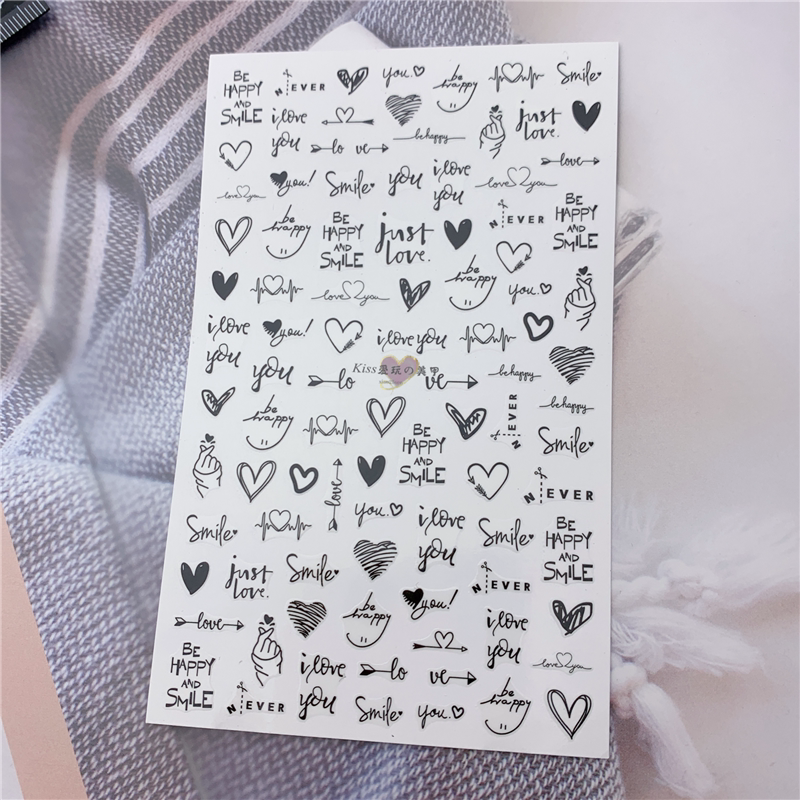 BE HAPPY AND SMILE
NEVER
you.
be happy
Smile
i love you
just love.
love
be happy
love
you!
Smile
you
i love you
love you
love you
NEVER
BE HAPPY AND SMILE
be happy
BE HAPPY AND SMILE
just love.
be happy
you.
love you
i love you
you!
i love you
you
love
be happy
Kiss爱玩の美甲
be happy
NEVER
be happy
BE HAPPY AND SMILE
Smile
love
you.
i love you
Smile
NEVER
Smile
BE HAPPY AND SMILE
just love.
Smile
NEVER
love
be happy
you!
i love you
love you
BE HAPPY AND SMILE
i love you
love
NEVER
Smile
you.
be happy